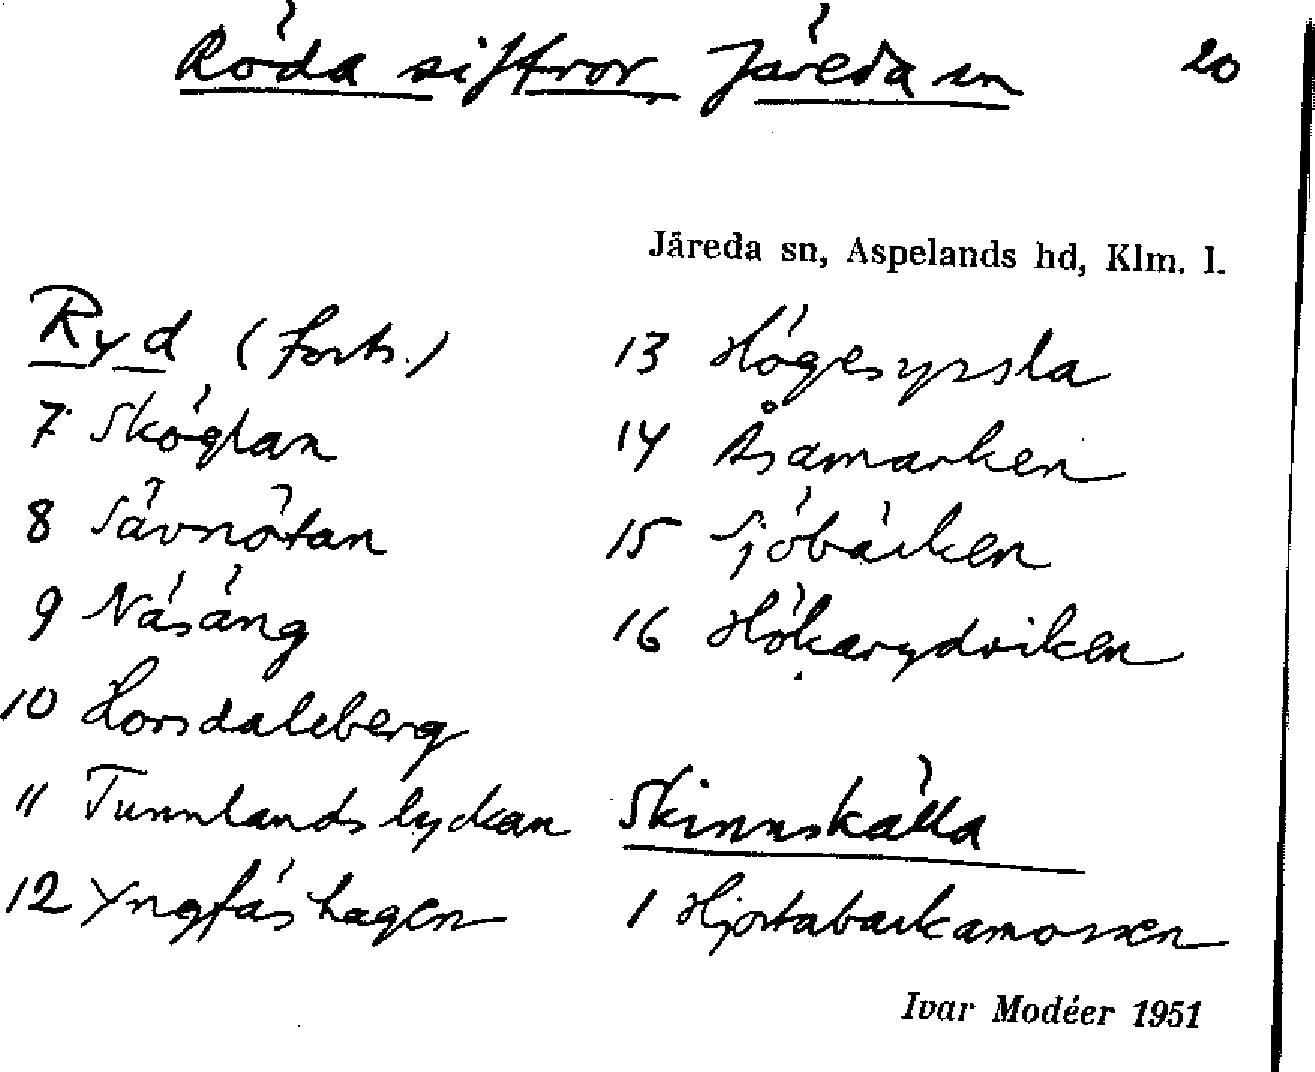 Röda siffror, Järeda sn 20
Järeda sn, Aspelands hd, Klm. l.
Ryd (forts.)
7 Sköglan
8 Sävnötan
9 Näsäng
10 Horsdaleberg
11 Tunnlandslyckan
12 Yngfäshagen
13 Högesyssla
14 Åsamarken
15 Sjöbäcken
16 Hökarydviken
Skinnskälla
1 Hjortabackamossen
Ivar Modéer 1951